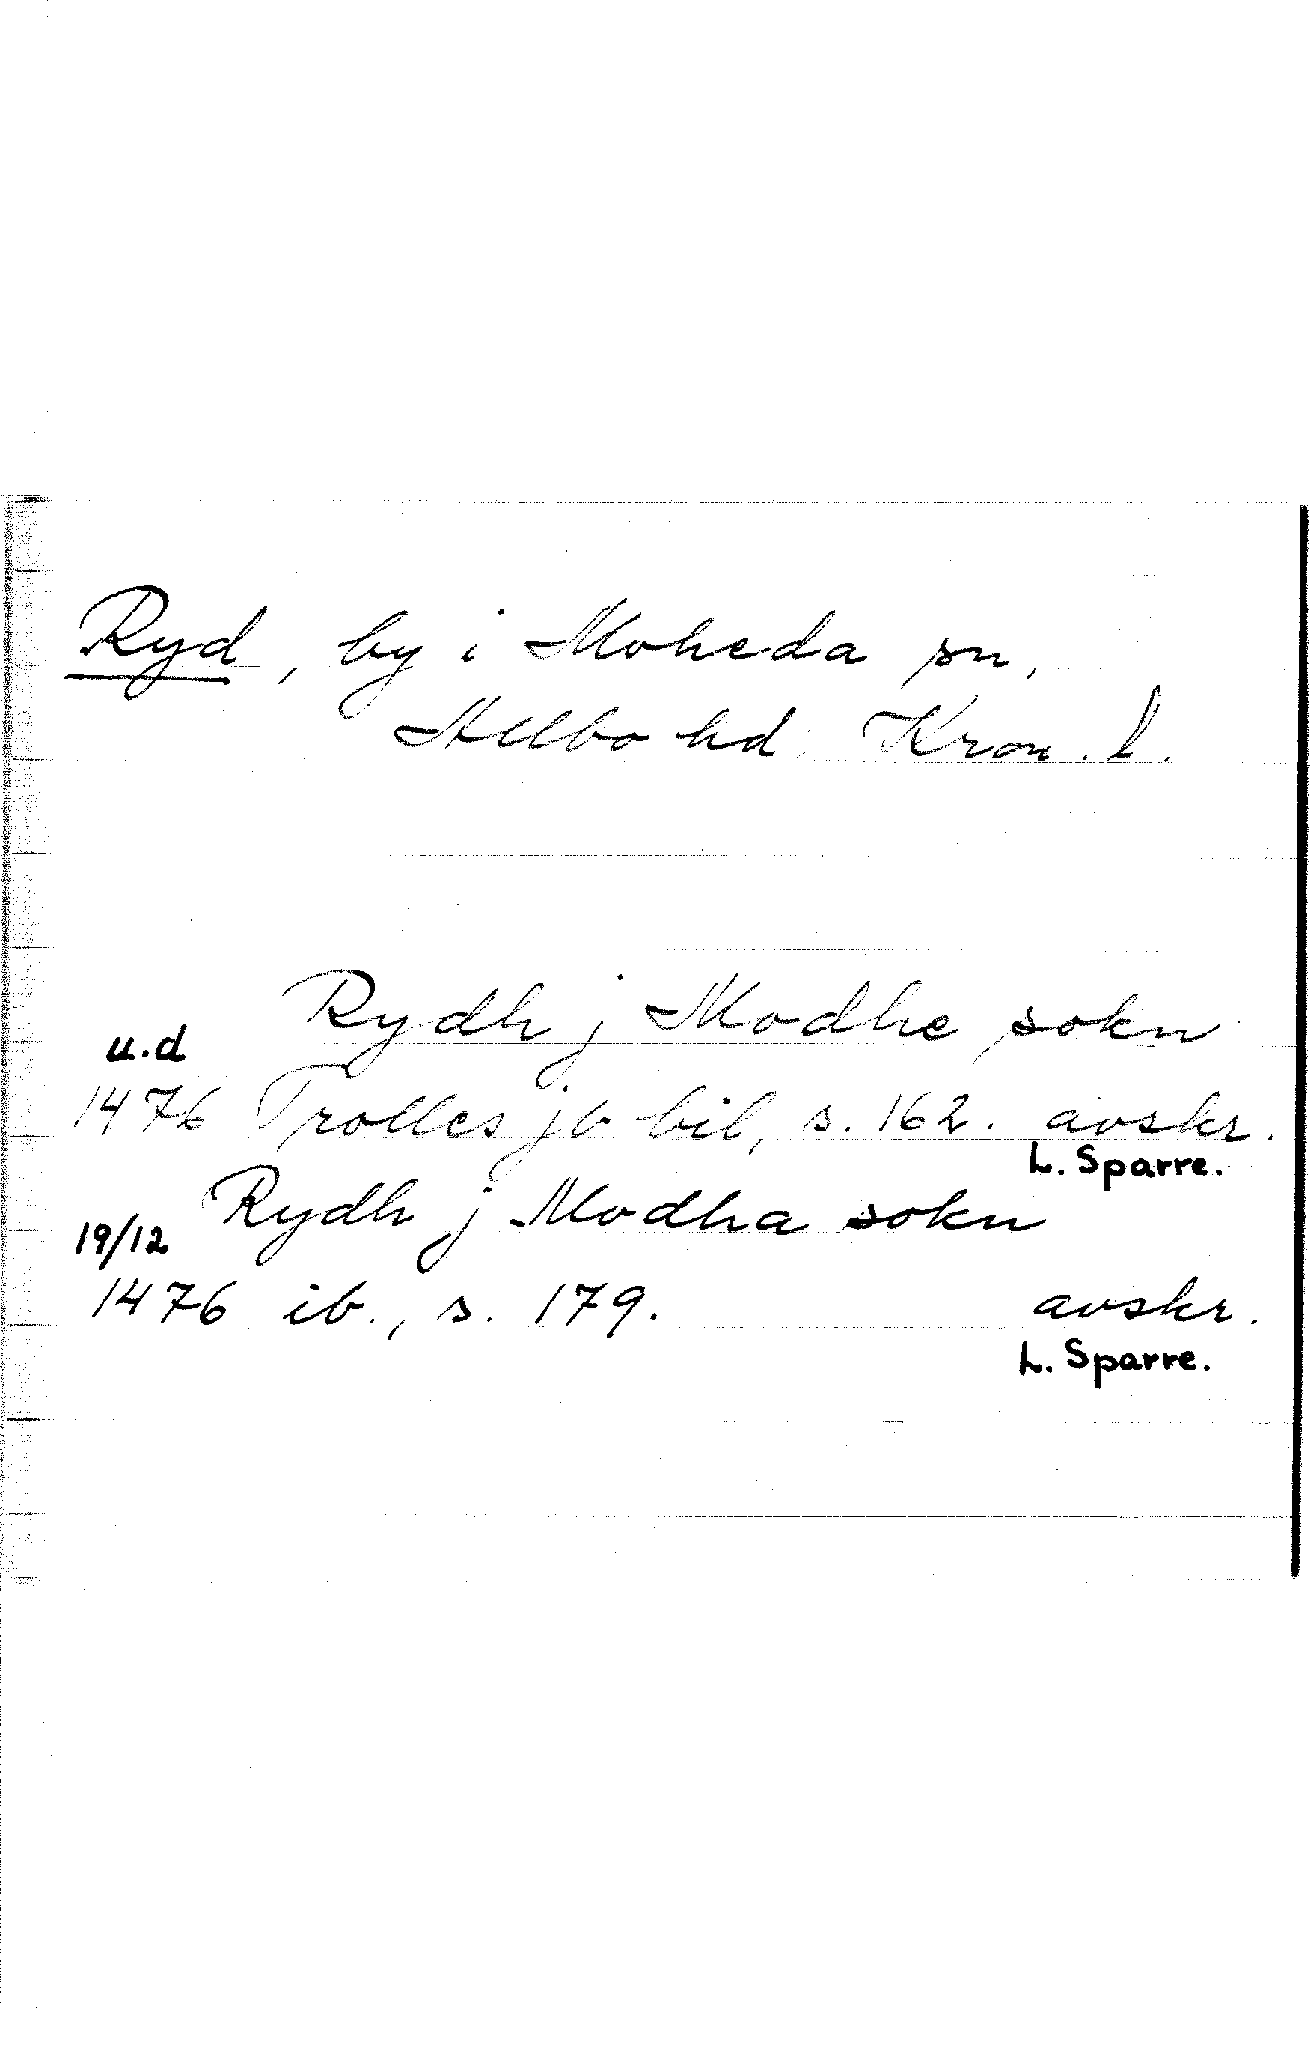 Ryd, by i Moheda sn,
Allbo hd Kron. l.
Rydh j Modhe sokn
u.d
1476 Trolles jb bil, s. 162. avskr.
L. Sparre.
Rydh j Modha sokn
19/12
1476 ib., s. 179. avskr.
L. Sparre.